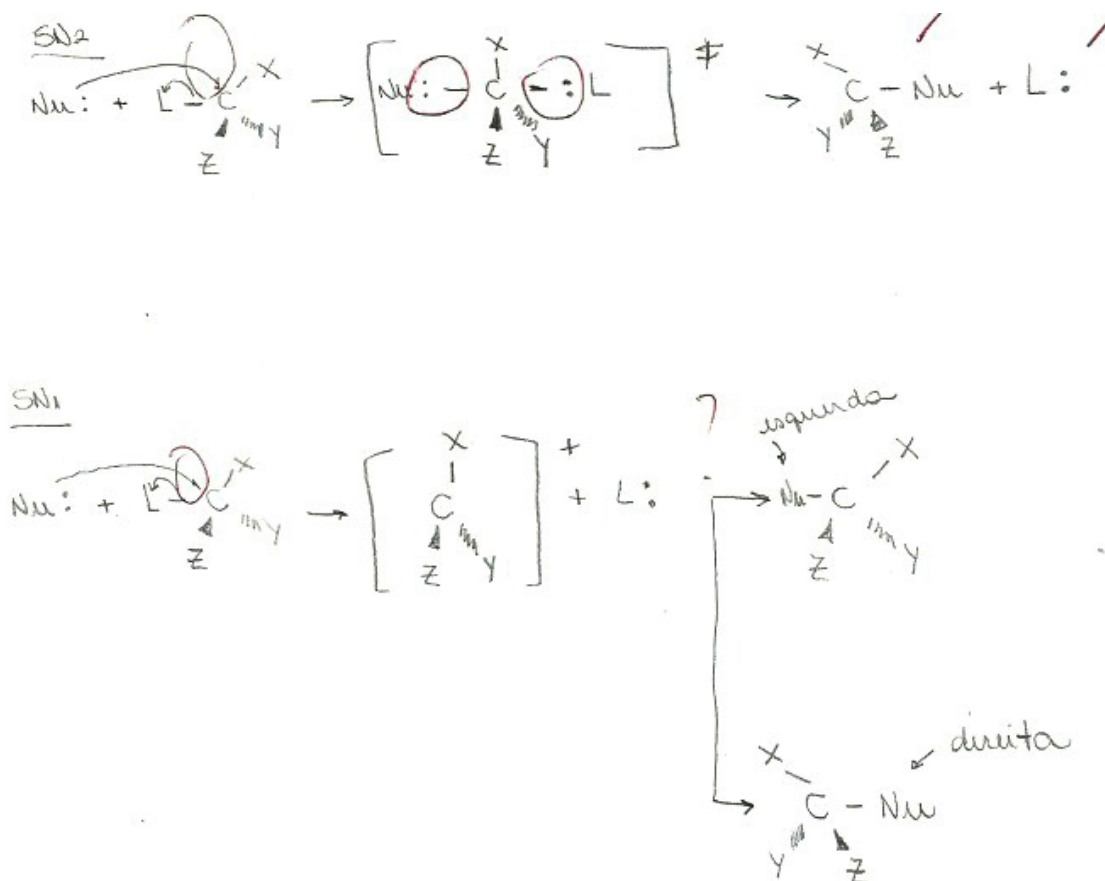 SN2
Nu: + L - C - X Y Z → [Nu: - C - :L X Z Y] ‡ → X Y Z C - Nu + L:
SN1
Nu: + L - C X Y Z → [X C Z Y] + + L: ? esquerda Nu - C X Z Y
direita
X C - Nu
Y Z